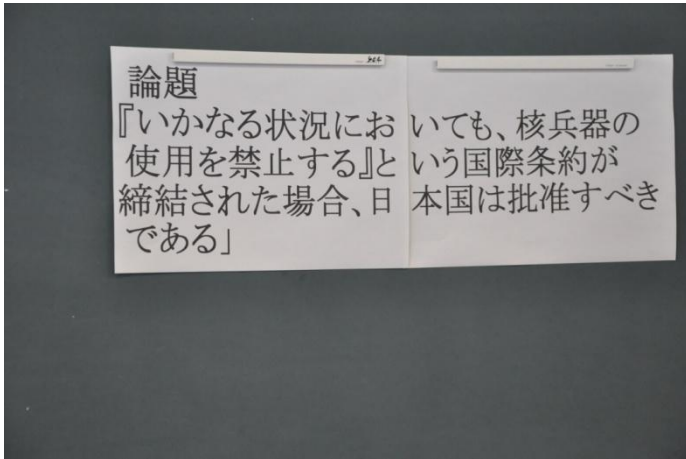 論題
『いかなる状況において も、核兵器の
使用を禁止する』という国際条約が
締結された場合、日本国は批准すべき
である」